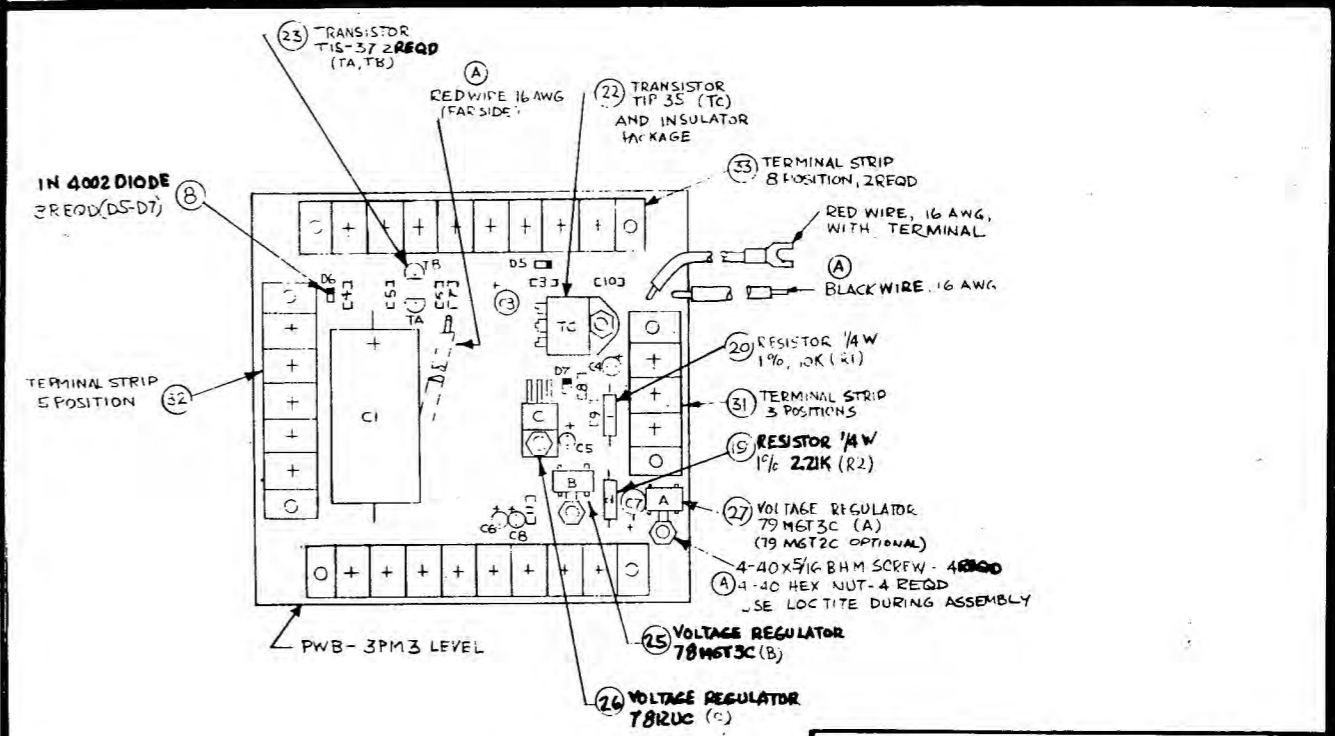 23 TRANSISTOR
TIS-37 2REQD
(TA, TB)
A
RED WIRE 16 AWG
(FAR SIDE)
22 TRANSISTOR
TIP 35 (TC)
AND INSULATOR
PACKAGE
33 TERMINAL STRIP
8 POSITION, 2REQD
IN 4002 DIODE 8
3REQD(D5-D7)
RED WIRE, 16 AWG,
WITH TERMINAL
A
BLACK WIRE, 16 AWG
TB
D5
D6
C3
TA
TC
C4
D7
C1
C
C5
B
C7
A
C6
C8
20 RESISTOR 1/4 W
1%, 10K (R1)
TERMINAL STRIP
5 POSITION 32
31 TERMINAL STRIP
3 POSITIONS
19 RESISTOR 1/4 W
1% 2.21K (R2)
27 VOLTAGE REGULATOR
79 MGT3C (A)
(79 MGT2C OPTIONAL)
4-40X5/16 BHM SCREW - 4REQD
A 4-40 HEX NUT-4 REQD
USE LOCTITE DURING ASSEMBLY
PWB-3PM3 LEVEL
25 VOLTAGE REGULATOR
78MGT3C (B)
26 VOLTAGE REGULATOR
7812UC (C)